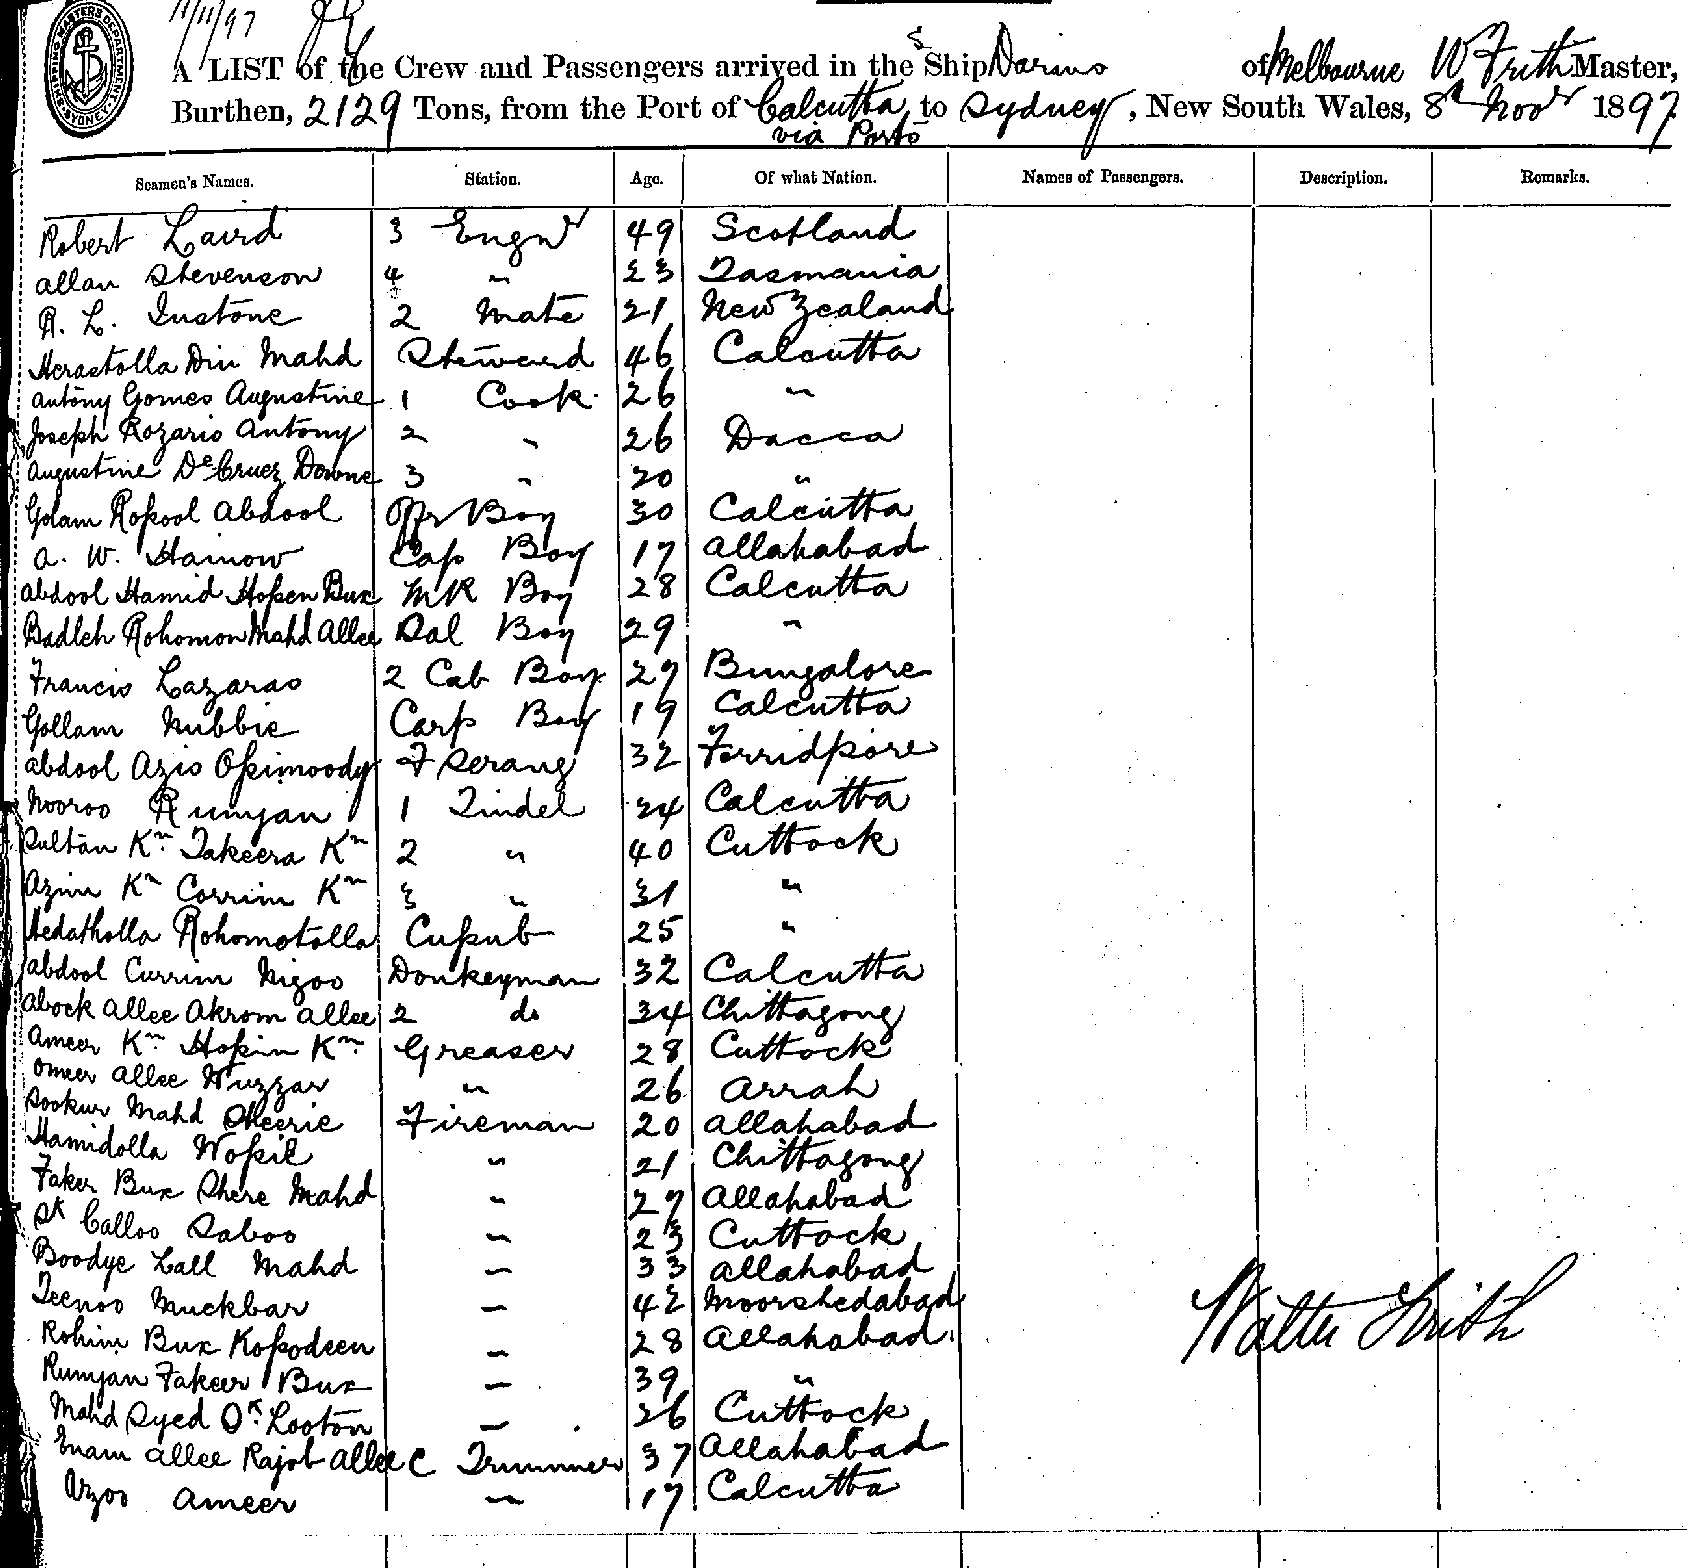 11/11/97
SHIPPING MASTER'S DEPARTMENT SYDNEY
A LIST of the Crew and Passengers arrived in the S Ship Darius of Melbourne W Frith Master,
Burthen, 2129 Tons, from the Port of Calcutta to Sydney, New South Wales, 8th Novr 1897
via Ports
Seamen's Names. Station. Age. Of what Nation. Names of Passengers. Description. Remarks.
Robert Laird 3 Engnr 49 Scotland
Allan Stevenson 4 " 23 Tasmania
R. L. Instone 2 Mate 21 New Zealand
Din Mahd Steward 46 Calcutta
Antony Gomes Augustine 1 Cook 26 "
Joseph Rozario Antony 2 " 26 Dacca
Augustine De Cruez Downe 3 " 20 "
Golam Rosool Abdool Offr Boy 30 Calcutta
A. W. Hainow Cap Boy 17 Allahabad
Abdool Hamid Hossen Bux MR Boy 28 Calcutta
Badleh Rohomon Mahd Allee Sal Boy 29 "
Francis Lazaras 2 Cab Boy 27 Bungalore
Gollam Nubbie Carp Boy 19 Calcutta
Abdool Azis Osimoody F Serang 32 Ferridpore
Nooroo Rumjan 1 Tindel 34 Calcutta
Sultan Kn Takeera Kn 2 " 40 Cuttock
Azim Kn Corrim Kn 3 " 31 "
Hedatholla Rohomotolla Cussub 25 "
Abdool Currim Nizoo Donkeyman 32 Calcutta
Abock Allee Akrom Allee 2 do 34 Chittagong
Ameer Kn Hossin Kn Greaser 28 Cuttock
Omeer Allee Wuzzar " 26 Arrah
Sookur Mahd Sheerie Fireman 20 Allahabad
Hamidolla Wosil " 21 Chittagong
Faker Bux Shere Mahd " 27 Allahabad
Sk Calloo Saboo " 23 Cuttock
Boodye Lall Mahd " 33 Allahabad
Teenoo Muckbar " 42 Moorshedabad
Rohim Bux Kossodeen " 28 Allahabad
Rumjan Fakeer Bux " 39 "
Mahd Syed Sk Looton " 26 Cuttock
Enam Allee Rajob Allee C Trimmer 37 Allahabad
Azoo Ameer " 17 Calcutta
Walter Frith